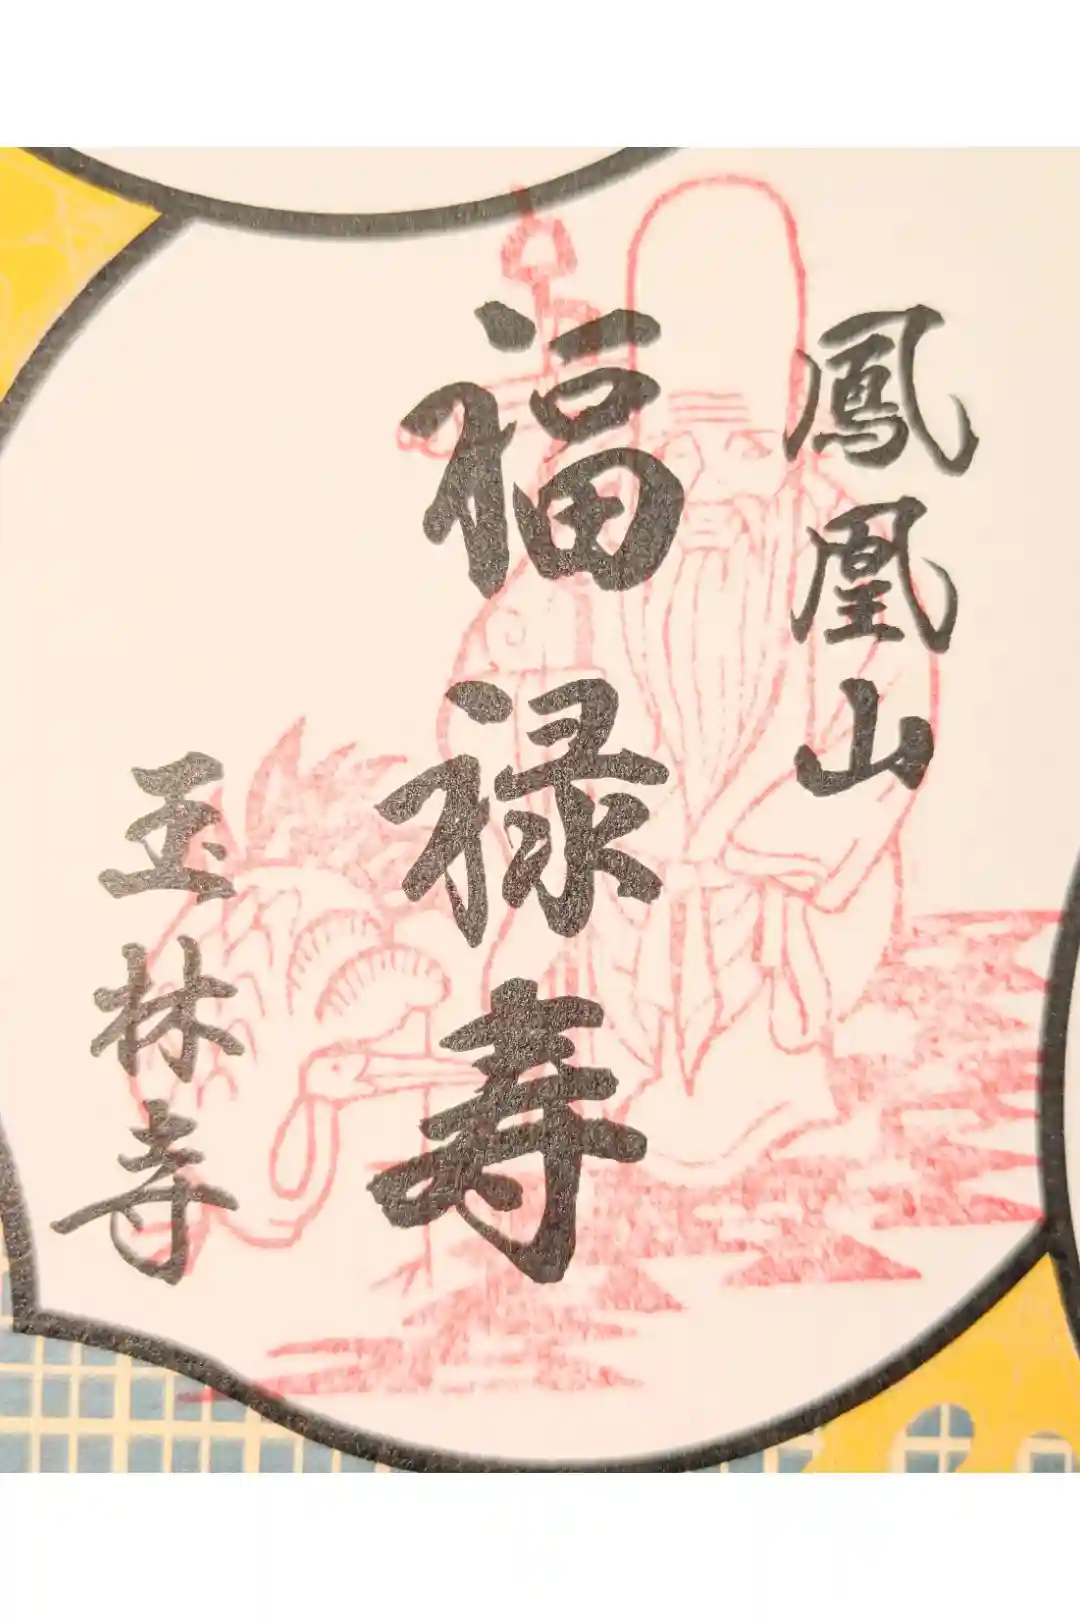 鳳凰山
福禄寿
玉林寺